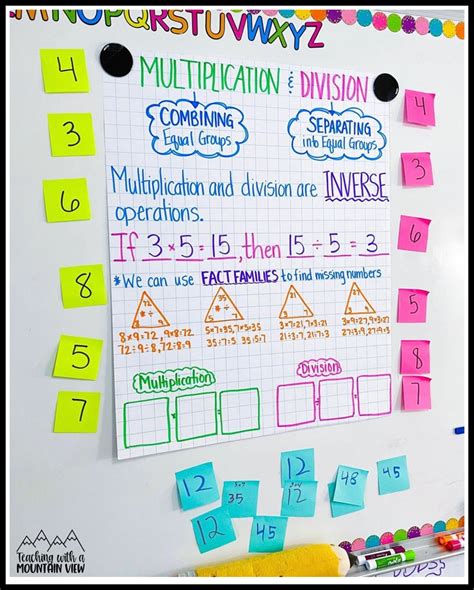 MNOPQRSTUVWXYZ
MULTIPLICATION & DIVISION
COMBINING
Equal Groups
SEPARATING
into Equal Groups
Multiplication and division are INVERSE
operations.
If 3 × 5 = 15, then 15 ÷ 5 = 3
*We can use FACT FAMILIES to find missing numbers
72
* ÷
9
35
21
27
8×9=72, 9×8=72
72÷9=8, 72÷8=9
5×7=35, 7×5=35
35÷7=5
3×7=21, 7×3=21
21÷7=3
3×9=27, 9×3=27
27÷9=3
Multiplication
Division
×
÷
=
4
3
6
8
5
7
4
3
6
5
8
7
12
35
12
48
45
12
45
Teaching with a
MOUNTAIN VIEW